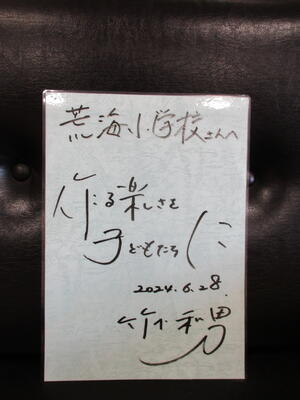 荒海小学校さんへ
作る楽しさを
子どもたちに
2024.6.28.
竹下和男